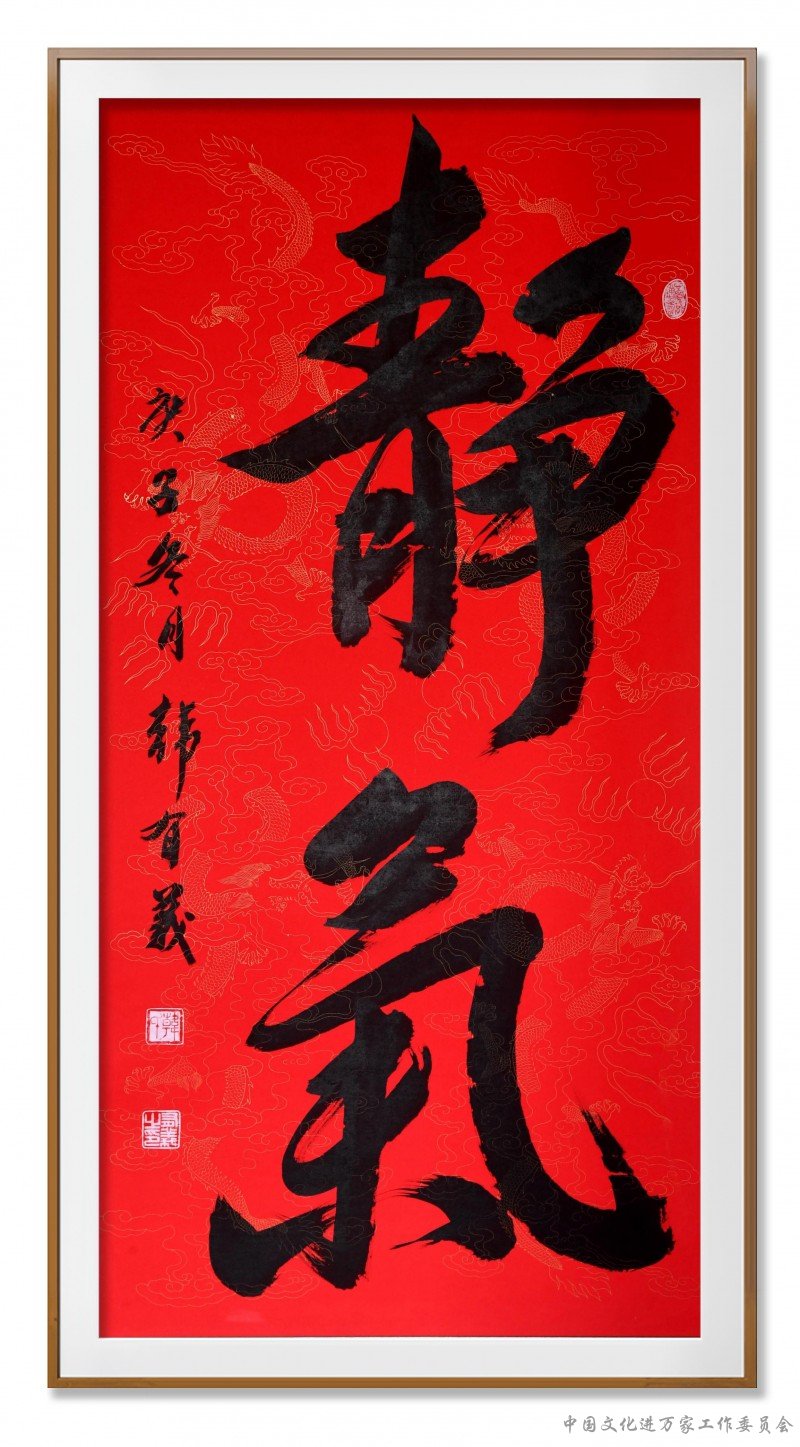 靜氣
庚子冬月 韩有義
中国文化进万家工作委员会